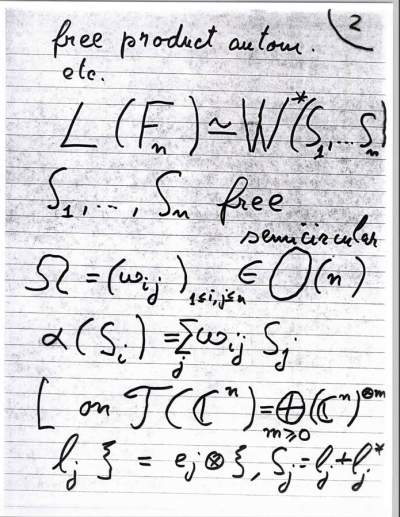 2
free product autom.
etc.
L(Fₙ) ≃ W*(S₁,...Sₙ)
S₁,..,Sₙ free
semicircular
Ω = (ω_ij)_{1≤i,j≤n} ∈ O(n)
α(S_i) = Σ_j ω_ij S_j
[ on 𝒯(ℂⁿ) = ⊕_{m≥0} (ℂⁿ)^{⊗m}
l_j ξ = e_j ⊗ ξ, S_j = l_j + l_j*